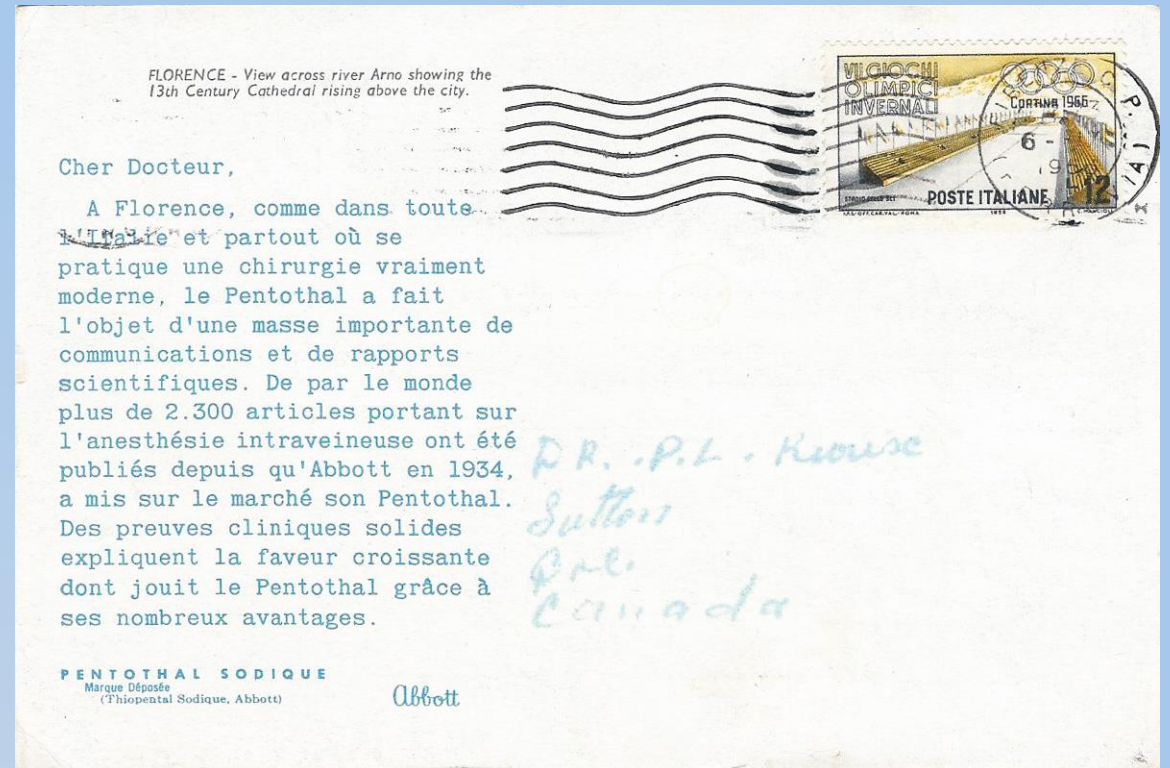 FLORENCE - View across river Arno showing the
13th Century Cathedral rising above the city.
VII GIOCHI
OLIMPICI
INVERNALI
CORTINA 1956
POSTE ITALIANE 12
1956
6 -
Cher Docteur,
A Florence, comme dans toute
l'Italie et partout où se
pratique une chirurgie vraiment
moderne, le Pentothal a fait
l'objet d'une masse importante de
communications et de rapports
scientifiques. De par le monde
plus de 2.300 articles portant sur
l'anesthésie intraveineuse ont été
publiés depuis qu'Abbott en 1934,
a mis sur le marché son Pentothal.
Des preuves cliniques solides
expliquent la faveur croissante
dont jouit le Pentothal grâce à
ses nombreux avantages.
DR. P.L. Krouse
Sutton
Canada
PENTOTHAL SODIQUE
Marque Déposée
(Thiopental Sodique, Abbott)
Abbott